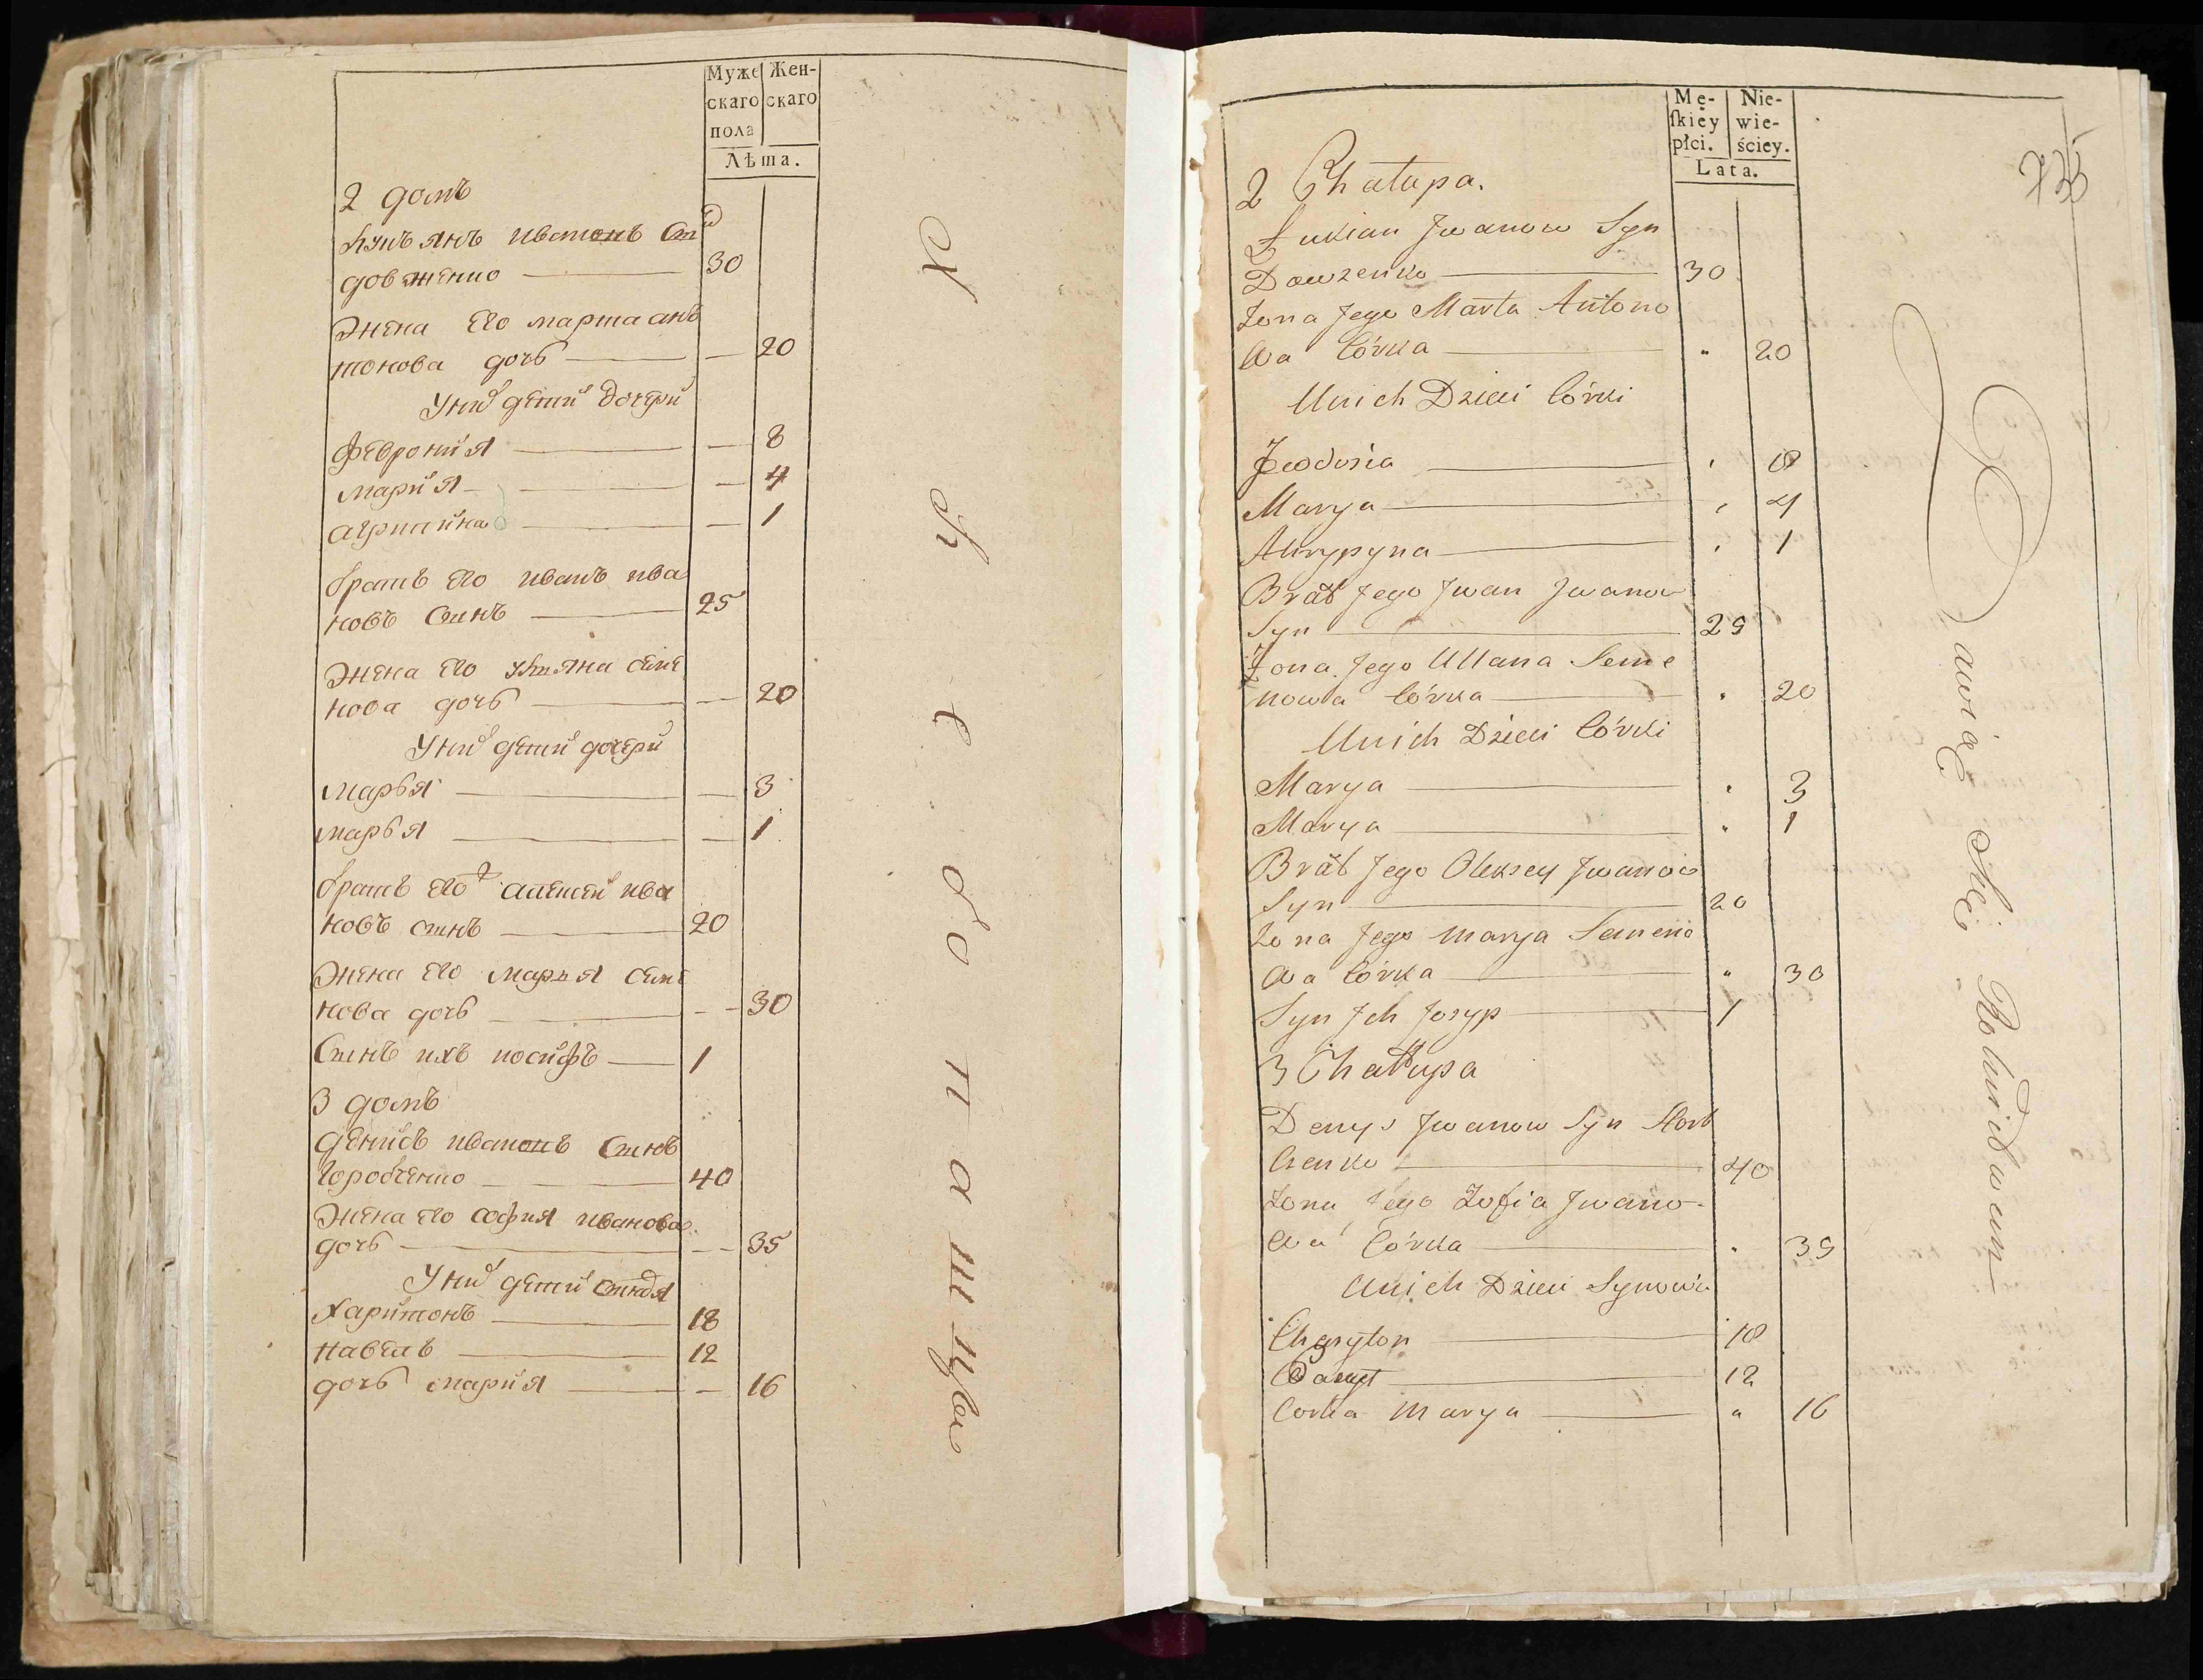 Муже Жен-
скаго скаго
пола
Лѣта.
2 домъ
Лукъянъ Ивановъ Сынъ
довженко — 30
Жена Его марта ан
тонова дочь — — 20
У них детей дочери
Феврония — — 8
Мария — — 4
агрипина — — 1
братъ Его иванъ ива
новъ Сынъ — 25
Жена Его ульяна семе
нова дочь — — 20
У них детей дочери
марья — — 3
марья — — 1
братъ Его 2 алексей ива
новъ сынъ — 20
Жена Его марья семе
нова дочь — — 30
Сынъ ихъ иосифъ — 1
3 домъ
денисъ ивановъ Сынъ
Горобченко — 40
Жена Его софия иванова
дочь — — 35
У них детей
Харитонъ — 18
павелъ — 12
дочь мария — — 16
Mę- Nie-
skiey wie-
płci. ściey.
Lata.
2 Chałupa.
Łukian Jwanow Syn
Dowzenko — 30
Zona Jego Marta Antono
wa Córka — " 20
Unich Dzieci Córki
Feodosia — 8
Marya — 4
Ahrypyna — 1
Brat Jego Jwan Jwanow
Syn — 25
Zona Jego Ullana Seme
nowa Córka — " 20
Unich Dzieci Córki
Marya — " 3
Marya — " 1
Brat Jego Oleksey Jwanow
Syn — 20
Zona Jego Marya Semeno
wa Córka — " 30
Syn Jch Josyp — 1
3 Chałupa
Denys Jwanow Syn Horb
czenko — 40
Zona Jego Zofia Jwano-
wa Córka — " 35
Unich Dzieci Synowie
Charyton — 18
12
Corka Marya — " 16